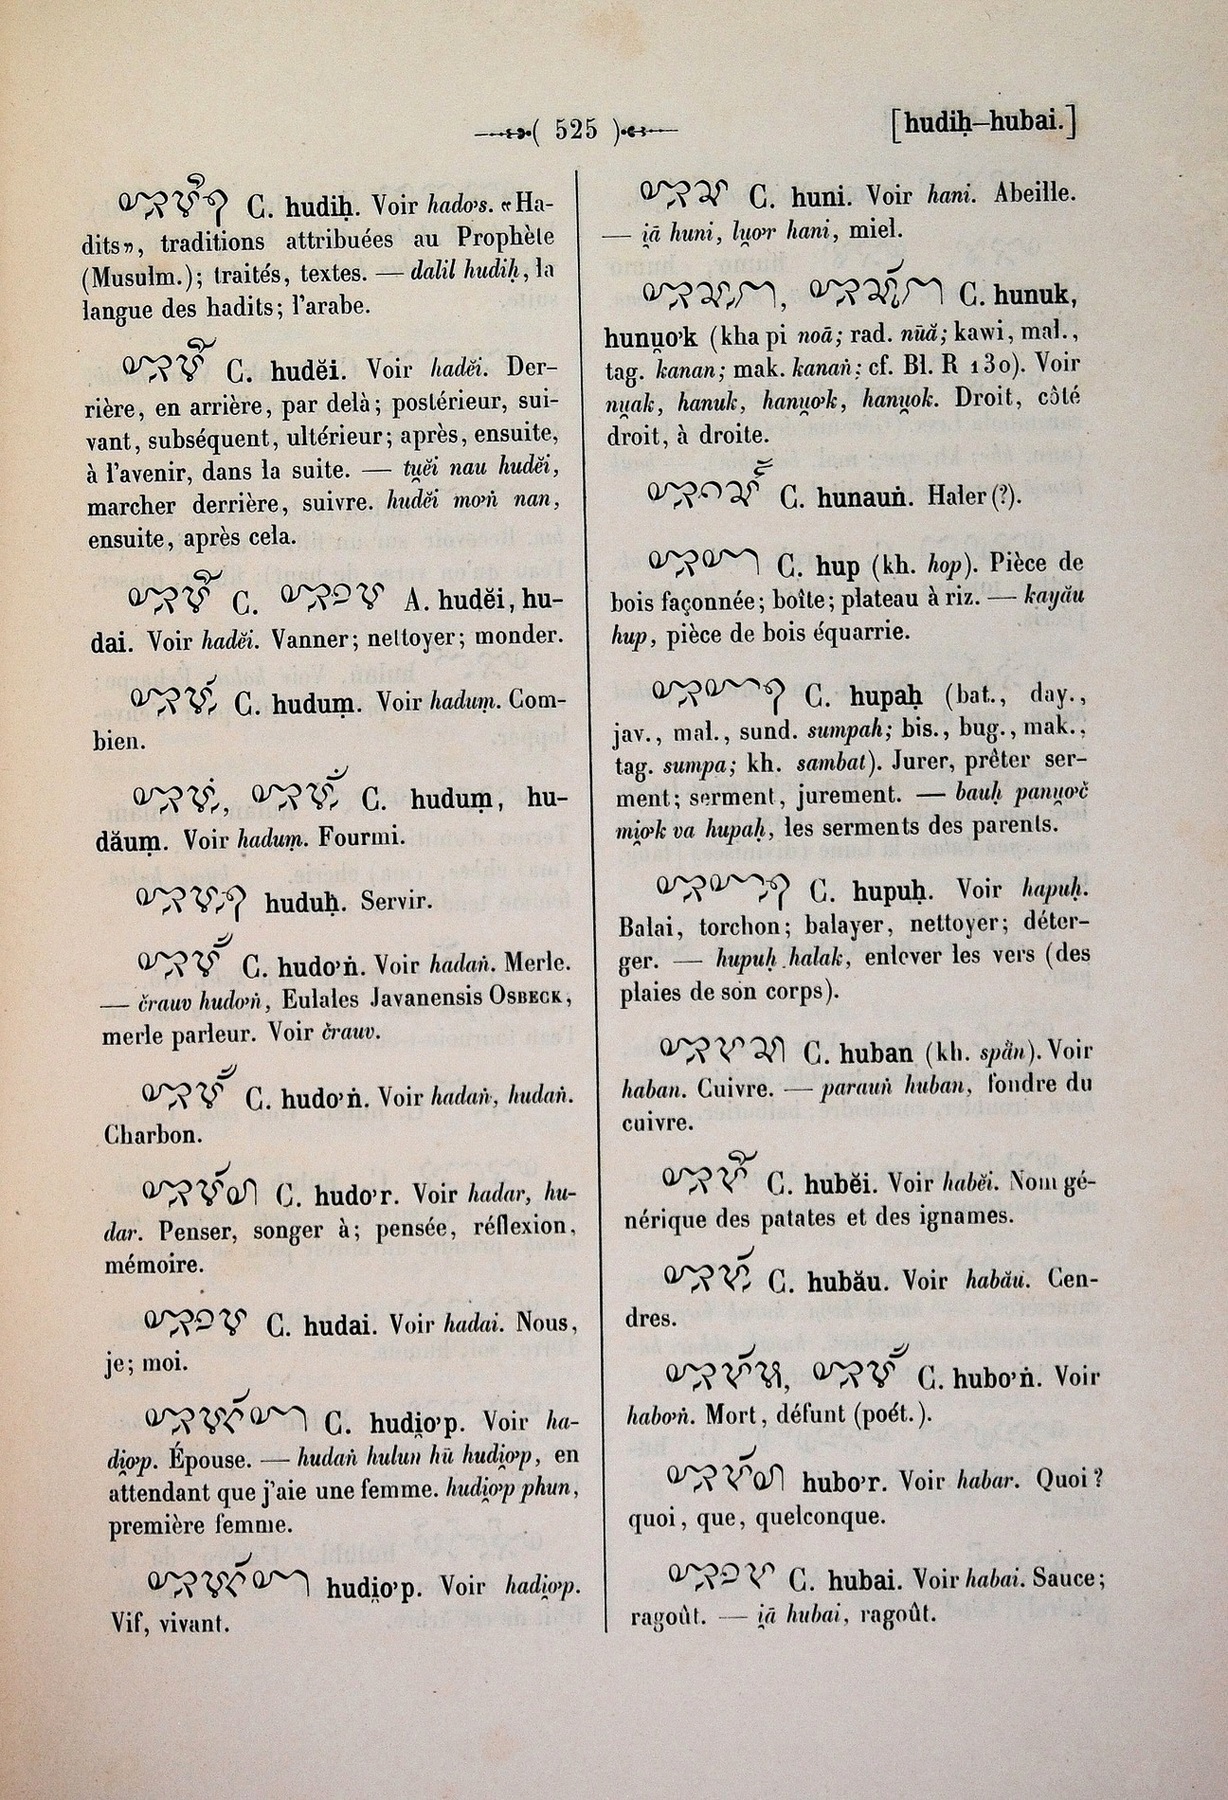 ( 525 )
[hudiḥ–hubai.]
C. hudiḥ. Voir hadơs. «Ha-
dits», traditions attribuées au Prophète
(Musulm.); traités, textes. — dalil hudiḥ, la
langue des hadits; l'arabe.
C. hudĕi. Voir hadĕi. Der-
rière, en arrière, par delà; postérieur, sui-
vant, subséquent, ultérieur; après, ensuite,
à l'avenir, dans la suite. — tu̯ĕi nau hudĕi,
marcher derrière, suivre. hudĕi mơṅ nan,
ensuite, après cela.
C. A. hudĕi, hu-
dai. Voir hadĕi. Vanner; nettoyer; monder.
C. huduṃ. Voir haduṃ. Com-
bien.
C. huduṃ, hu-
dăuṃ. Voir haduṃ. Fourmi.
huduḥ. Servir.
C. hudơṅ. Voir hadaṅ. Merle.
— črauv hudơṅ, Eulales Javanensis Osbeck,
merle parleur. Voir črauv.
C. hudơṅ. Voir hadaṅ, hudaṅ.
Charbon.
C. hudơr. Voir hadar, hu-
dar. Penser, songer à; pensée, réflexion,
mémoire.
C. hudai. Voir hadai. Nous,
je; moi.
C. hudi̯ơp. Voir ha-
di̯ơp. Épouse. — hudaṅ hulun hū hudi̯ơp, en
attendant que j'aie une femme. hudi̯ơp phun,
première femme.
hudi̯ơp. Voir hadi̯ơp.
Vif, vivant.
C. huni. Voir hani. Abeille.
— i̯ā huni, lu̯ơr hani, miel.
C. hunuk,
hunu̯ơk (kha pi noā; rad. nūă; kawi, mal.,
tag. kanan; mak. kanaṅ; cf. Bl. R 130). Voir
nu̯ak, hanuk, hanu̯ơk, hanu̯ok. Droit, côté
droit, à droite.
C. hunauṅ. Haler (?).
C. hup (kh. hop). Pièce de
bois façonnée; boîte; plateau à riz. — kayău
hup, pièce de bois équarrie.
C. hupaḥ (bat., day.,
jav., mal., sund. sumpah; bis., bug., mak.,
tag. sumpa; kh. sambat). Jurer, prêter ser-
ment; serment, jurement. — bauḥ panu̯ơč
mi̯ơk va hupaḥ, les serments des parents.
C. hupuḥ. Voir hapuḥ.
Balai, torchon; balayer, nettoyer; déter-
ger. — hupuḥ halak, enlever les vers (des
plaies de son corps).
C. huban (kh. spăn). Voir
haban. Cuivre. — parauṅ huban, fondre du
cuivre.
C. hubĕi. Voir habĕi. Nom gé-
nérique des patates et des ignames.
C. hubău. Voir habău. Cen-
dres.
C. hubơṅ. Voir
habơṅ. Mort, défunt (poét.).
hubơr. Voir habar. Quoi?
quoi, que, quelconque.
C. hubai. Voir habai. Sauce;
ragoût. — i̯ā hubai, ragoût.